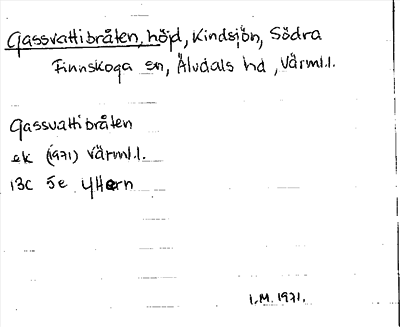 Gassvattibråten, höjd, Kindsjön, Södra
Finnskoga sn, Älvdals hd, Värml.l.
Gassvattibråten
ek (1971) Värml.l.
13C 5e Yttern
I.M. 1971.